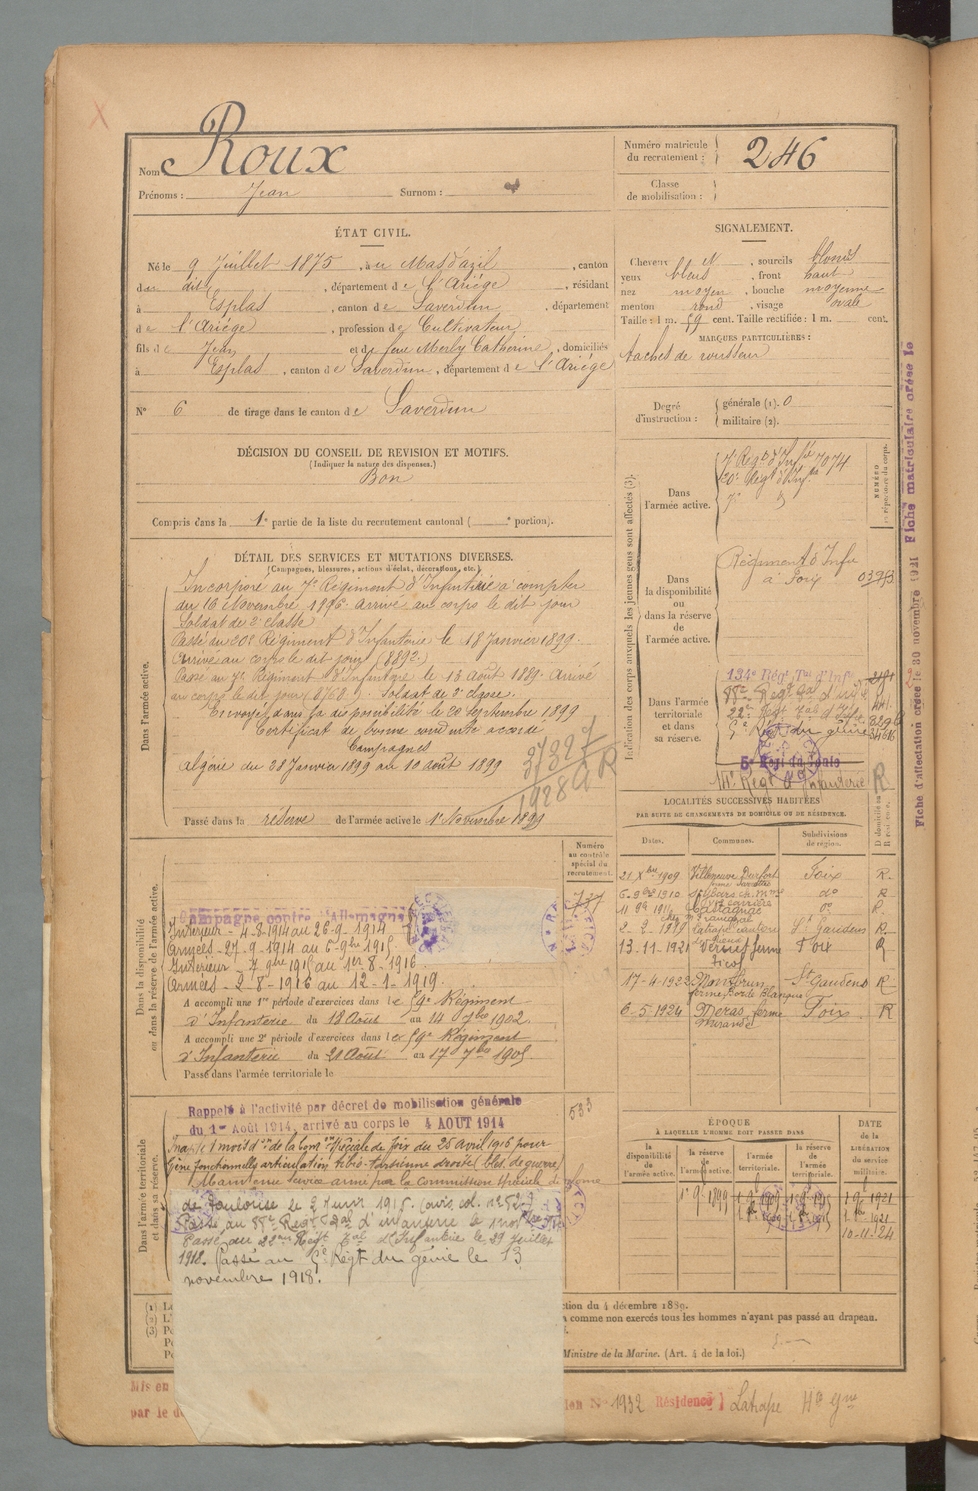 Nom Roux
Prénoms : Jean Surnom :
Numéro matricule du recrutement : 246
Classe de mobilisation :
ÉTAT CIVIL.
Né le 9 Juillet 1875, à au Mas d'azil, canton
du dit, département de l'Ariége, résidant
à Esplas, canton de Saverdun, département
de l'Ariége, profession de Cultivateur
fils de Jean et de feue Merly Catherine, domiciliés
à Esplas, canton de Saverdun, département de l'Ariége
N° 6 de tirage dans le canton de Saverdun
SIGNALEMENT.
Cheveux N, sourcils blonds
yeux bleus, front haut
nez moyen, bouche moyenne
menton rond, visage ovale
Taille : 1 m. 59 cent. Taille rectifiée : 1 m. cent.
MARQUES PARTICULIÈRES :
taches de rousseur
Degré d'instruction : générale (1). 0
militaire (2).
DÉCISION DU CONSEIL DE REVISION ET MOTIFS.
(Indiquer la nature des dispenses.)
Bon
Compris dans la 1e partie de la liste du recrutement cantonal ( portion).
DÉTAIL DES SERVICES ET MUTATIONS DIVERSES.
(Campagnes, blessures, actions d'éclat, décorations, etc.)
Dans l'armée active.
Incorporé au 7e Régiment d'Infanterie à compter
du 16 Novembre 1896. Arrivé au corps le dit jour
Soldat de 2e classe
Passé au 20e Régiment d'Infanterie le 18 Janvier 1899.
Arrivé au corps le dit jour (8892)
Passé au 7e Régiment d'Infanterie le 13 août 1899. Arrivé
au corps le dit jour. Soldat de 2e classe.
Envoyé dans la disponibilité le 20 Septembre 1899
Certificat de bonne conduite accordé
Campagnes
Algérie du 28 Janvier 1899 au 10 août 1899
37327
1928 R
Passé dans la réserve de l'armée active le 1er Novembre 1899
Indication des corps auxquels les jeunes gens sont affectés (3).
NUMÉRO au répertoire du corps.
Dans l'armée active.
7e Régt d'Infie 7074
20e Régt d'Infie
7e
Dans la disponibilité ou dans la réserve de l'armée active.
Régiment d'Infie
à Foix
Dans l'armée territoriale et dans sa réserve.
134e Régt Tal d'Inf
88e Régt Tal d'Infie
22e Régt Tal d'Inf
Gie Régt du génie
5e Régt du Génie
14e Régt d'Infanterie
LOCALITÉS SUCCESSIVES HABITÉES
PAR SUITE DE CHANGEMENTS DE DOMICILE OU DE RÉSIDENCE.
Dates. Communes. Subdivisions de région. D domicile ou R résidence.
21 Xbre 1909 Villeneuve Durfort Foix R.
do R
Castagnac do R.
2-2-1919 Latrape St Gaudens R
13-11-1921 ferme Foix R
17-4-1922 Montbrun St Gaudens R
ferme Borde Blanque
6-5-1924 Meras, ferme Foix. R
Mirande
Dans la disponibilité ou dans la réserve de l'armée active.
Numéro au contrôle spécial du recrutement.
737
Campagne contre l'Allemagne
Intérieur - 4-8-1914 au 26-9-1914
Armées - 27-9-1914 au 6-9bre 1915
Intérieur - 7 9bre 1915 au 1er-8-1916
Armées - 2-8-1916 au 12-1-1919.
A accompli une 1re période d'exercices dans le 59e Régiment
d'Infanterie du 18 Août au 14 7bre 1902.
A accompli une 2e période d'exercices dans le 59e Régiment
d'Infanterie du 21 Août au 17 7bre 1905.
Passé dans l'armée territoriale le
Dans l'armée territoriale et dans sa réserve.
533
Rappelé à l'activité par décret de mobilisation générale
du 1er Août 1914, arrivé au corps le 4 AOUT 1914
Inapte 1 mois d'on de la Comon spéciale de Foix du 26 avril 1916 pour
gêne fonctionnelle articulation tibio-tarsienne droite (bles. de guerre)
Maintenu service armé par la Commission spéciale
de Toulouse le
Passé au 88e Regt Tal d'infanterie le
Passé au 22me Régt Tal d'Infanterie le 29 Juillet
1918. Passé au Gie Régt du génie le 13
novembre 1918.
ÉPOQUE
À LAQUELLE L'HOMME DOIT PASSER DANS
la disponibilité de l'armée active. la réserve de l'armée active. l'armée territoriale. la réserve de l'armée territoriale.
DATE de la LIBÉRATION du service militaire.
1er 9 1899 1 9 1909 1 9 1915 1 9 1921
1921
10-11-24
(1)
(2)
(3)
ction du 4 décembre 1889.
comme non exercés tous les hommes n'ayant pas passé au drapeau.
Ministre de la Marine. (Art. 4 de la loi.)
Mis en
par le dé
ion N° 1932 Résidence Latrape Hte Gne
Fiche d'affectation créée le 30 novembre 1921 Fiche matriculaire créée le